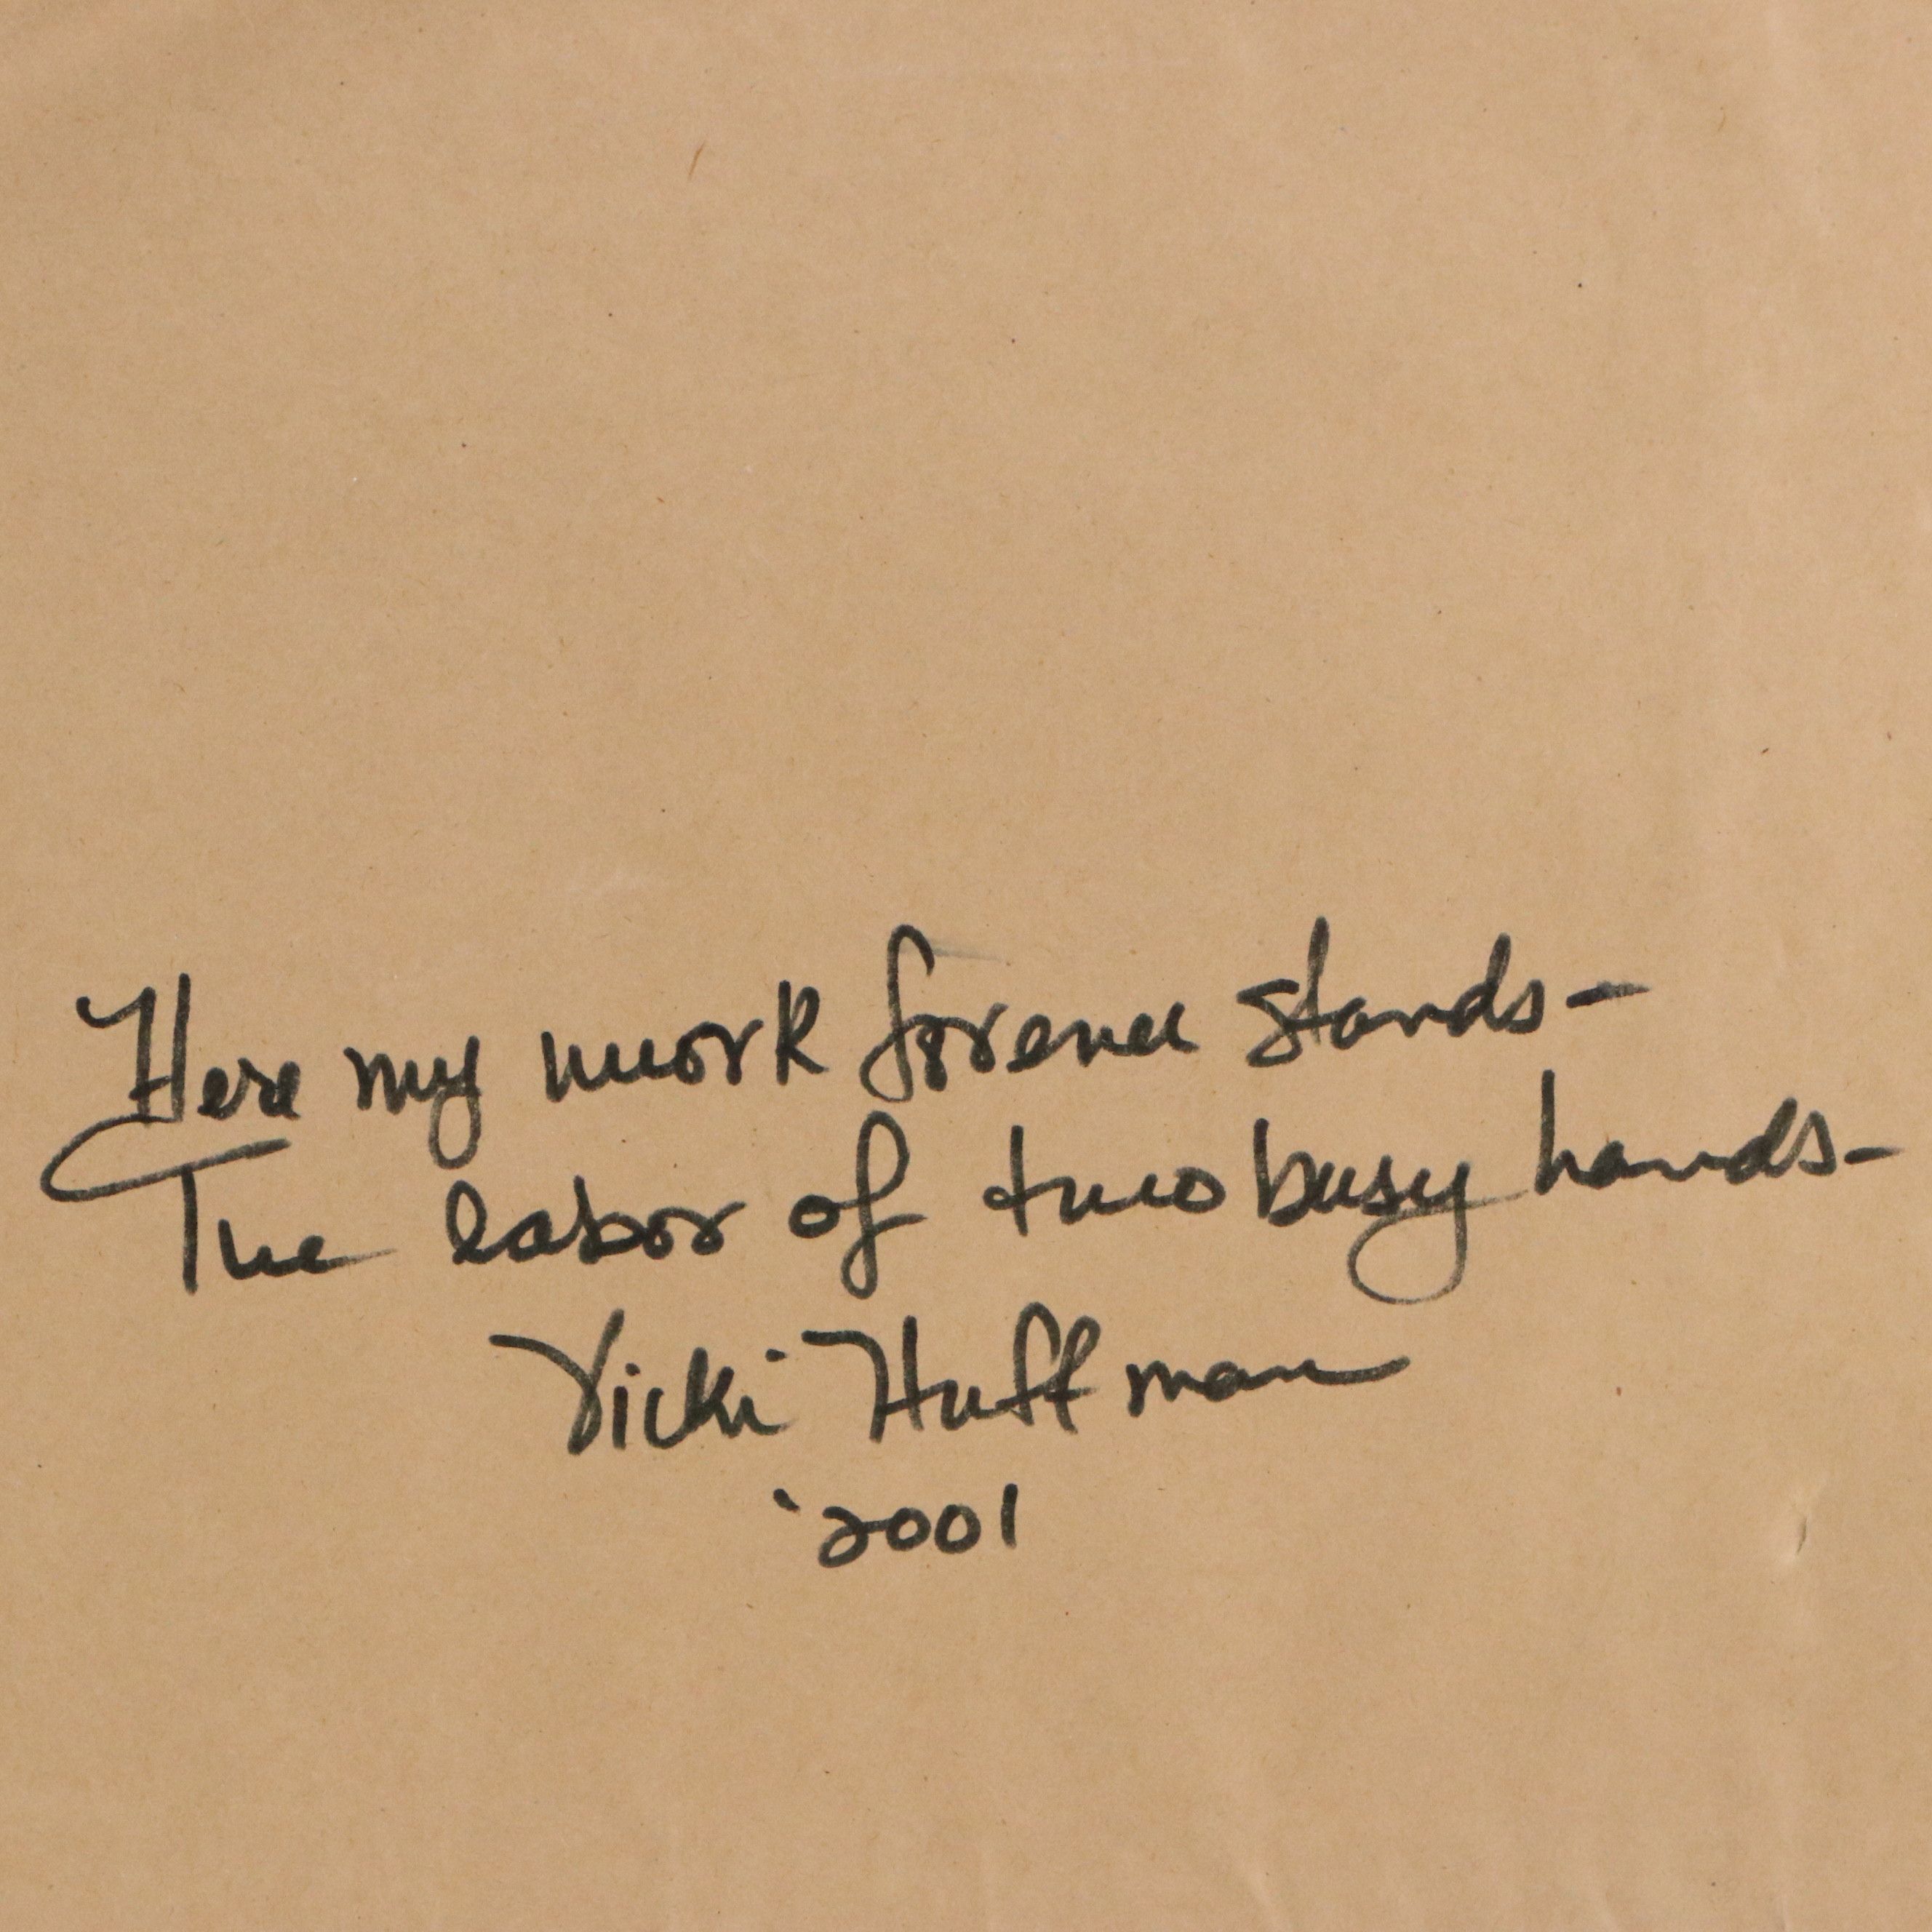 Here my work forever stands-
The labor of two busy hands-
Vicki Huffman
'2001